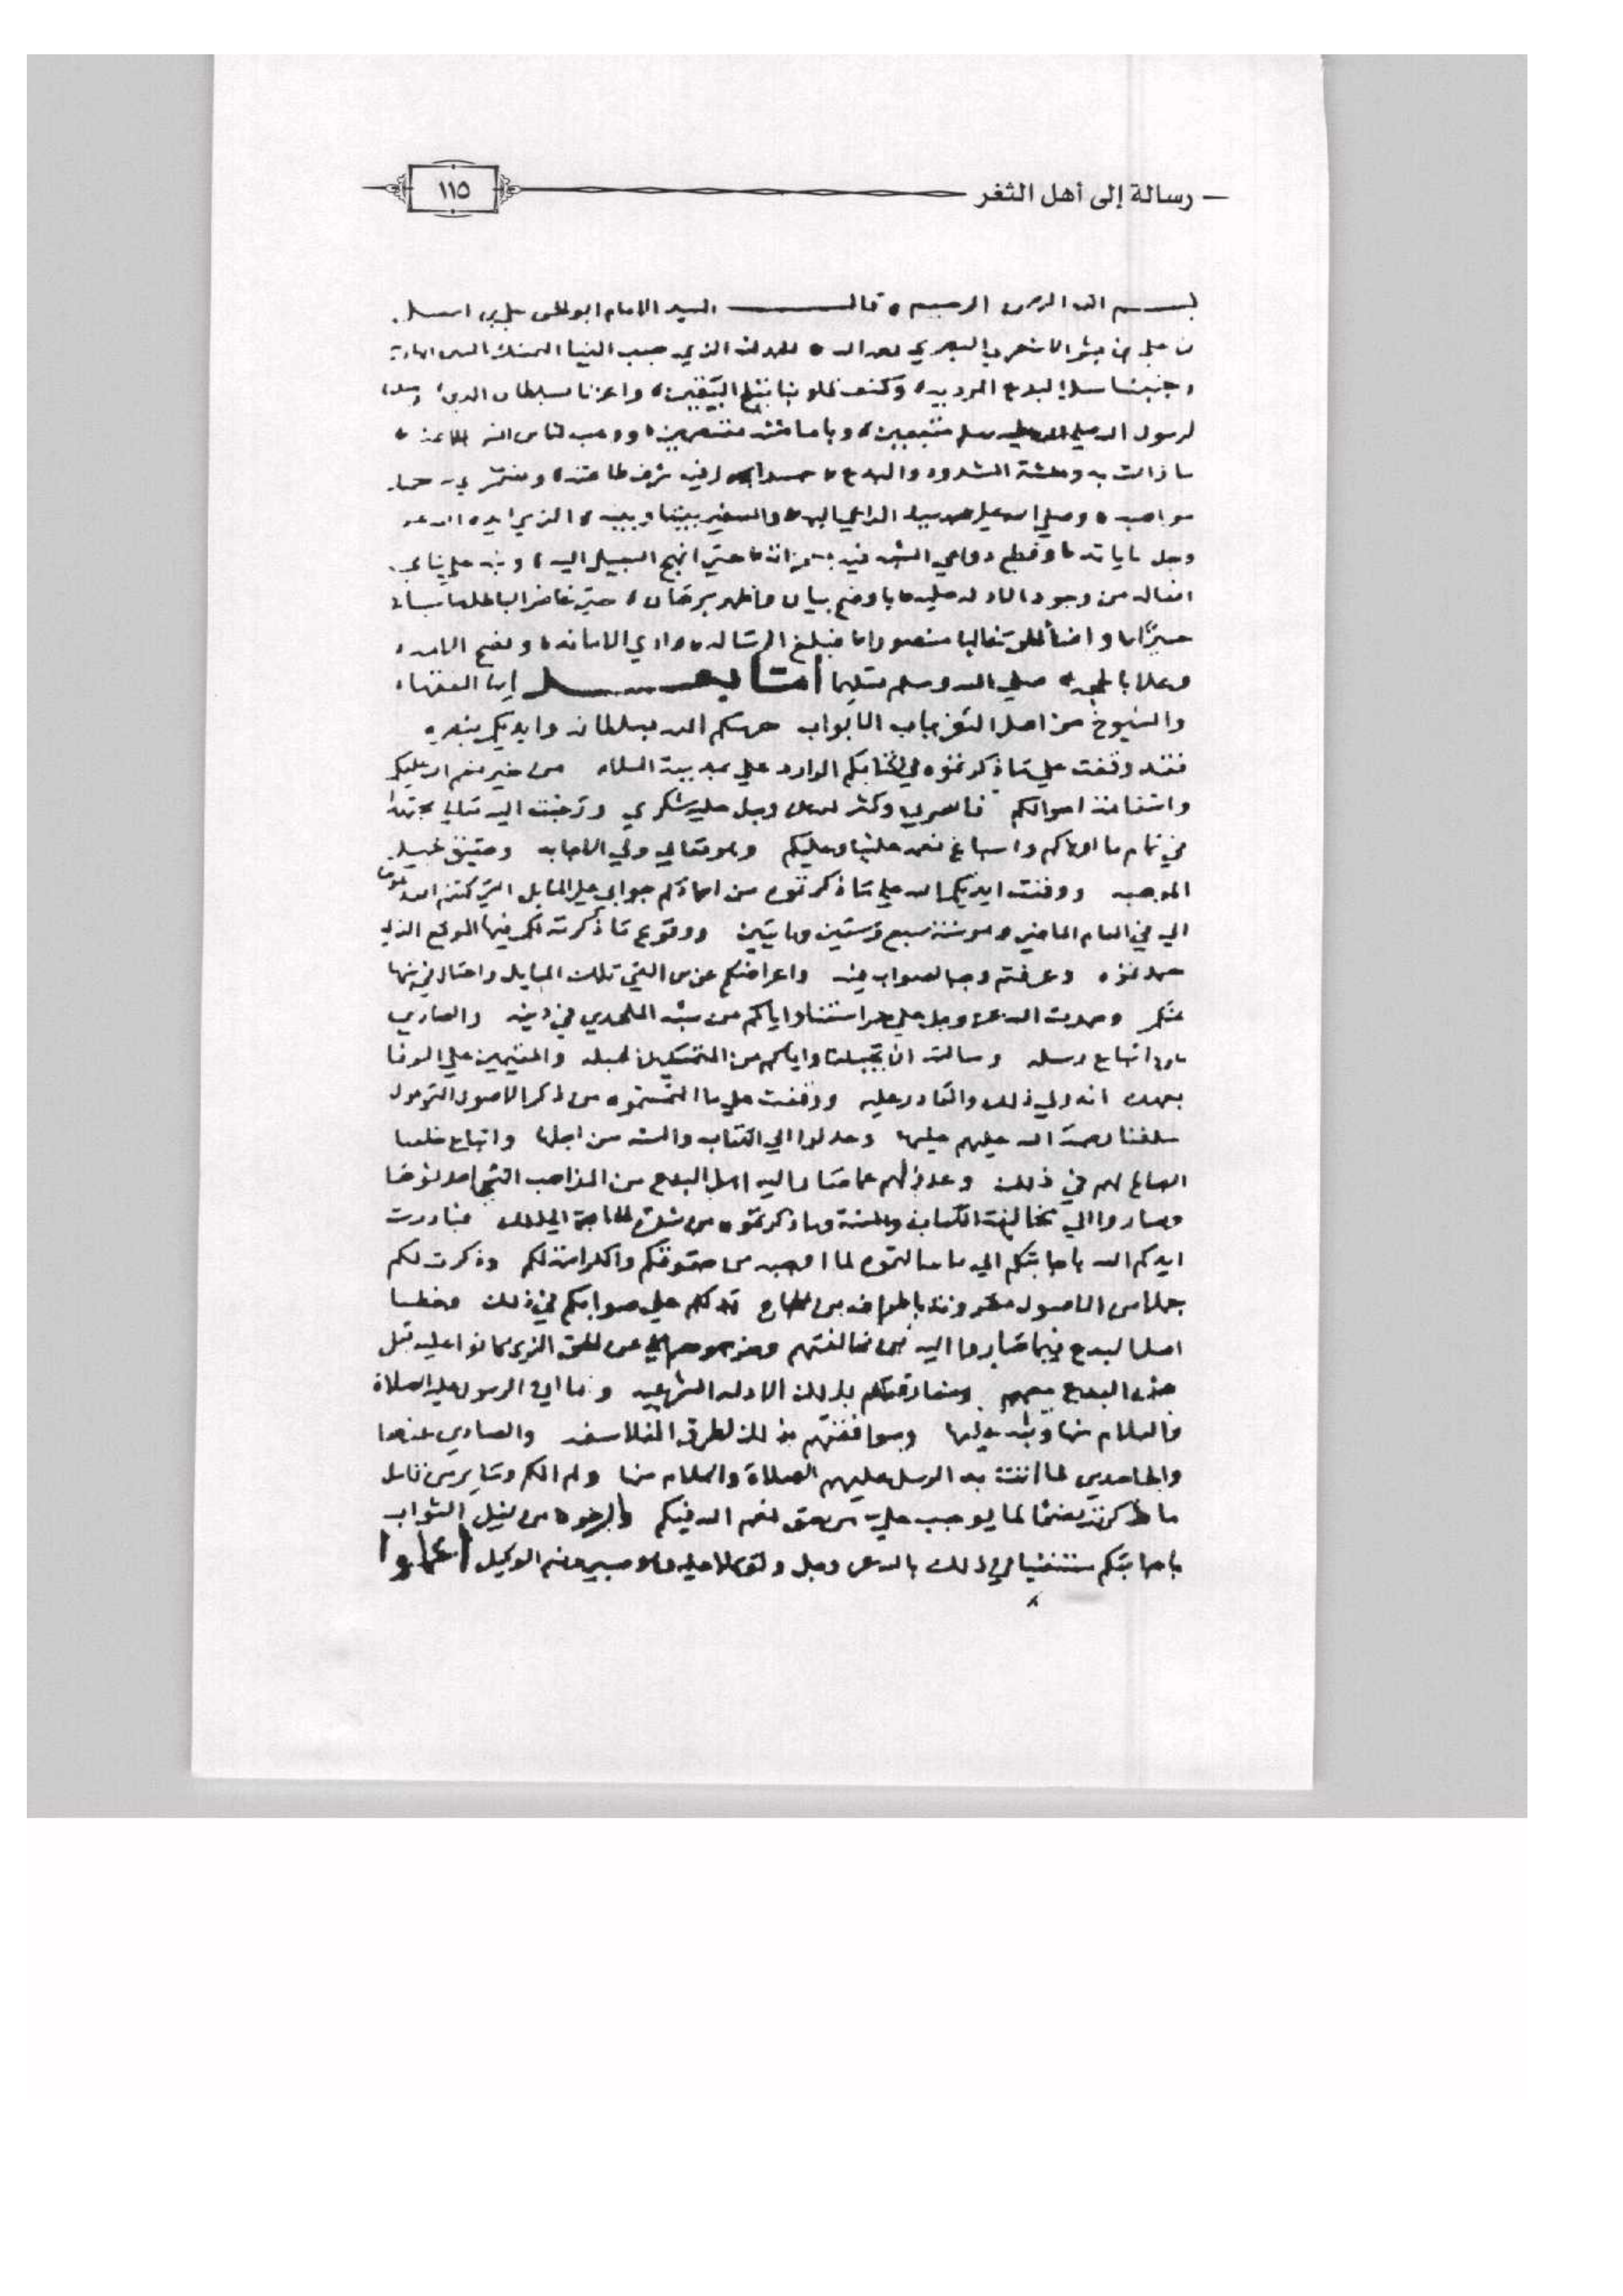 رسالة إلى أهل الثغر
١١٥
بسم الله الرحمن الرحيم قال السيد الامام ابو الحسن علي بن اسمعيل
بن علي بن بشر الاشعري البصري الحمد لله الذي حبب الينا التمسك بالسنن الهادية
وجنبنا سبل البدع المردية وكنف قلوبنا بثلج اليقين واعزنا بسلطان الدين وجعلنا
لرسول الله صلى الله عليه وسلم متبعين وبامامته معتصمين ووهب لنا من انس الجماعة
ما زالت به وحشة الشذوذ والبدع
مواهبه وصلي الله علي محمد نبيه الداعي اليه والسفير بيننا وبينه الذي ايده الله عز
وجل باياته وقطع دواعي الشبه فيه بمعجزاته حتي انهج السبيل اليه ونبه علي ما في
افعاله من وجود الادلة عليه باوضح بيان واظهر برهان حتي غاض الباطل
واضا الحق غالبا منصورا فبلغ الرسالة وادي الامانة ونصح الامة
صلي الله وسلم تسليما اما بعد ايها الفقهاء
والشيوخ من اهل الثغر بباب الابواب حرسكم الله بسلطانه وايدكم بنصره
فقد وقفت علي ما ذكرتموه في كتابكم الوارد علي بمدينة السلام من خبر نعم الله عليكم
واستقامة احوالكم فاسرني وكثر لله عز وجل عليه شكري ورغبت اليه تعالي مجتهدا
في تمام ما اولاكم واسباغ نعمه علينا وعليكم وهو تعالي ولي الاجابه وحقيق بجميل
الموهبه ووقفت ايدكم الله علي ما ذكرتموه من احمادكم جوابي علي المسايل التي كنتم انفذتموها
الي في العام الماضي وهو سنة سبع وستين ومايتين ووقوع ما ذكرته لكم فيها الموقع الذي
حمدتموه وعرفتم وجه الصواب فيه واعراضكم عمن القي تلك المسايل واحتال في بثها
عندكم وحمدت الله عز وجل علي حراستنا واياكم من شبه الملحدين في دينه والصادين
عن اتباع رسله وسالته ان يجعلنا واياكم من المتمسكين بحبله والمقيمين علي الوفا
بعهده انه ولي ذلك والقادر عليه ووقفت علي ما التمستموه من ذكر الاصول التي عول
سلفنا رحمة الله عليهم عليها وعدلوا الي الكتاب والسنه من اجلها واتباع خلفنا
الصالح لهم في ذلك وعدولهم عما صار اليه اهل البدع من المذاهب التي احدثوها
وصاروا الي مخالفة الكتاب والسنة وما ذكرتموه من شدة الحاجة الي ذلك فبادرت
ايدكم الله باجابتكم الي ما سالتموه لما اوجبه من حقوقكم والكرامة لكم وذكرت لكم
جملا من الاصول مقرونة باطراف من الحجاج تدلكم علي صوابكم في ذلك وخطا
اهل البدع فيما صاروا اليه من مخالفتهم وخروجهم عن الحق الذي كانوا عليه قبل
هذه البدع معهم ومفارقتهم بذلك الادله الشرعيه وما اتي الرسول عليه الصلاة
والسلام منها ونبه عليها وموافقتهم بذلك لطرق الفلاسفه والصادين عنها
والجاحدين لما اتت به الرسل عليهم الصلاة والسلام منها ولم الكم وساير من تامل
ما ذكرته نصحا لما يوجب علي من حق نعم الله فيكم والرجوه من نيل الثواب
باجابتكم مستعينا في ذلك بالله عز وجل ومتوكلا عليه وهو حسبي ونعم الوكيل اعلموا